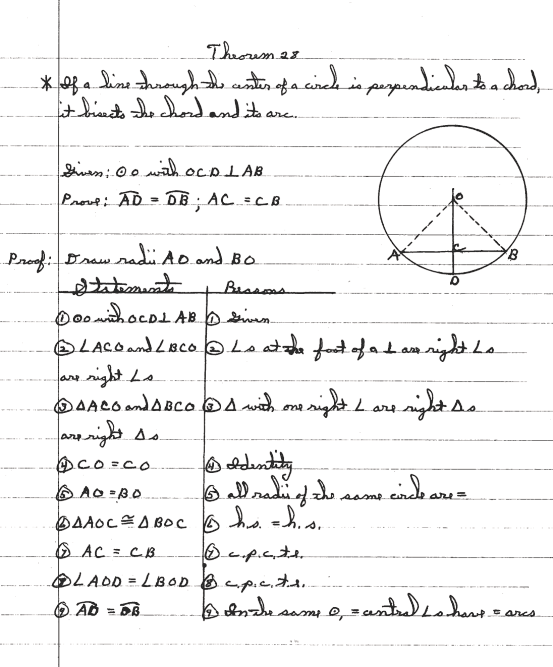 Theorem 28
* If a line through the center of a circle is perpendicular to a chord,
it bisects the chord and its arc.
Given: ⊙O with OCD ⊥ AB
Prove: A͡D = D͡B ; AC = CB
O
A
C
B
D
Proof: Draw radii AO and BO
Statements Reasons
① ⊙O with OCD ⊥ AB ① Given
② ∠ACO and ∠BCO ② ∠s at the foot of a ⊥ are right ∠s
are right ∠s
③ △ACO and △BCO ③ △ with one right ∠ are right △s
are right △s
④ CO = CO ④ Identity
⑤ AO = BO ⑤ all radii of the same circle are =
⑥ △AOC ≅ △BOC ⑥ h.s. = h.s.
⑦ AC = CB ⑦ c.p.c.t.e.
⑧ ∠AOD = ∠BOD ⑧ c.p.c.t.e.
⑨ A͡D = D͡B ⑨ In the same ⊙, = central ∠s have = arcs